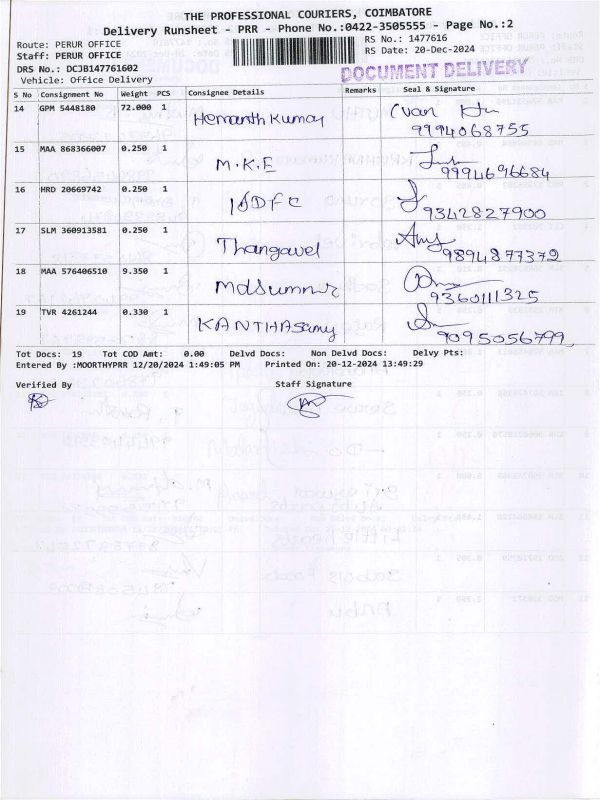 THE PROFESSIONAL COURIERS, COIMBATORE
Delivery Runsheet - PRR - Phone No.:0422-3505555 - Page No.:2
Route: PERUR OFFICE RS No.: 1477616
Staff: PERUR OFFICE RS Date: 20-Dec-2024
DRS No.: DCJB147761602 DOCUMENT DELIVERY
Vehicle: Office Delivery
S No Consignment No Weight PCS Consignee Details Remarks Seal & Signature
14 GPM 5448180 72.000 1 Hemanth Kumar
9994068755
15 MAA 868366007 0.250 1 M.K.E
9994696684
16 HRD 20669742 0.250 1 IDDFC
9342827900
17 SLM 360913581 0.250 1 Thangavel
9894877372
18 MAA 576406510 9.350 1
9360111325
19 TVR 4261244 0.330 1 KANTHASamy
9095056799
Tot Docs: 19 Tot COD Amt: 0.00 Delvd Docs: Non Delvd Docs: Delvy Pts:
Entered By :MOORTHYPRR 12/20/2024 1:49:05 PM Printed On: 20-12-2024 13:49:29
Verified By Staff Signature